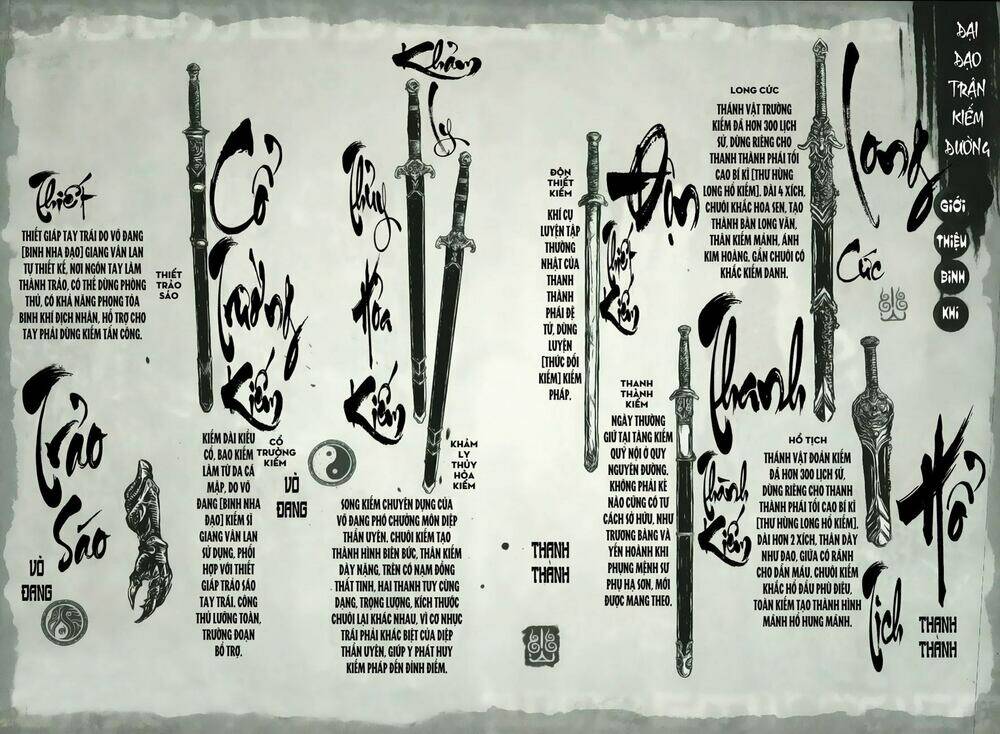 ĐẠI
ĐẠO
TRẬN
KIẾM
ĐƯỜNG
GIỚI
THIỆU
BINH
KHÍ
Long
Cức
LONG CỨC
THÁNH VẬT TRƯỜNG
KIẾM ĐÃ HƠN 300 LỊCH
SỬ, DÙNG RIÊNG CHO
THANH THÀNH PHÁI TỐI
CAO BÍ KĨ [THƯ HÙNG
LONG HỔ KIẾM]. DÀI 4 XÍCH,
CHUÔI KHẮC HOA SEN, TẠO
THÀNH BÀN LONG VÂN,
THÂN KIẾM MẢNH, ÁNH
KIM HOÀNG. GẦN CHUÔI CÓ
KHẮC KIẾM DANH.
Hổ
Tịch
HỔ TỊCH
THÁNH VẬT ĐOẢN KIẾM
ĐÃ HƠN 300 LỊCH SỬ,
DÙNG RIÊNG CHO THANH
THÀNH PHÁI TỐI CAO BÍ KĨ
[THƯ HÙNG LONG HỔ KIẾM].
DÀI HƠN 2 XÍCH, THÂN DÀY
NHƯ ĐAO, GIỮA CÓ RÃNH
CHO DẪN MÁU. CHUÔI KIẾM
KHẮC HỔ ĐẦU PHÙ ĐIÊU,
TOÀN KIẾM TẠO THÀNH HÌNH
MÃNH HỔ HUNG MÃNH.
THANH
THÀNH
Độn
Thiết
Kiếm
ĐỘN
THIẾT
KIẾM
KHÍ CỤ
LUYỆN TẬP
THƯỜNG
NHẬT CỦA
THANH
THÀNH
PHÁI ĐỆ
TỬ, DÙNG
LUYỆN
[THỨC ĐỐI
KIẾM] KIẾM
PHÁP.
Thanh
Thành
Kiếm
THANH
THÀNH
KIẾM
NGÀY THƯỜNG
GIỮ TẠI TÀNG KIẾM
QUỸ NỘI Ở QUY
NGUYÊN ĐƯỜNG.
KHÔNG PHẢI KẺ
NÀO CŨNG CÓ TƯ
CÁCH SỞ HỮU, NHƯ
TRƯƠNG BẰNG VÀ
YẾN HOÀNH KHI
PHỤNG MỆNH SƯ
PHỤ HẠ SƠN, MỚI
ĐƯỢC MANG THEO.
THANH
THÀNH
Khảm
Ly
Thủy
Hỏa
Kiếm
KHẢM
LY THỦY
HỎA
KIẾM
SONG KIẾM CHUYÊN DỤNG CỦA
VÕ ĐANG PHÓ CHƯỞNG MÔN DIỆP
THẦN UYÊN. CHUÔI KIẾM TẠO
THÀNH HÌNH BIÊN BỨC, THÂN KIẾM
DÀY NẶNG, TRÊN CÓ NẠM ĐỒNG
THẤT TINH, HAI THANH TUY CÙNG
DẠNG, TRỌNG LƯỢNG, KÍCH THƯỚC
CHUÔI LẠI KHÁC NHAU, VÌ CƠ NHỤC
TRÁI PHẢI KHÁC BIỆT CỦA DIỆP
THẦN UYÊN, GIÚP Y PHÁT HUY
KIẾM PHÁP ĐẾN ĐỈNH ĐIỂM.
Cổ
Trường
Kiếm
CỔ
TRƯỜNG
KIẾM
KIẾM DÀI KIỂU
CỔ, BAO KIẾM
LÀM TỪ DA CÁ
MẬP, DO VÕ
ĐANG [BINH NHA
ĐẠO] KIẾM SĨ
GIANG VÂN LAN
SỬ DỤNG, PHỐI
HỢP VỚI THIẾT
GIÁP TRẢO SÁO
TAY TRÁI. CÔNG
THỦ LƯỠNG TOÀN,
TRƯỜNG ĐOẢN
BỔ TRỢ.
VÕ
ĐANG
Thiết
Trảo
Sáo
THIẾT
TRẢO
SÁO
THIẾT GIÁP TAY TRÁI DO VÕ ĐANG
[BINH NHA ĐẠO] GIANG VÂN LAN
TỰ THIẾT KẾ, NƠI NGÓN TAY LÀM
THÀNH TRẢO, CÓ THỂ DÙNG PHÒNG
THỦ, CÓ KHẢ NĂNG PHONG TỎA
BINH KHÍ ĐỊCH NHÂN, HỖ TRỢ CHO
TAY PHẢI DÙNG KIẾM TẤN CÔNG.
VÕ
ĐANG